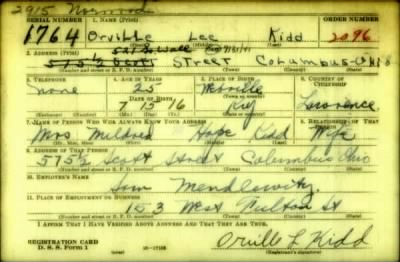 2915 Norwood
SERIAL NUMBER 1. NAME (Print) ORDER NUMBER
1764 Orville Lee Kidd 2096
(First) (Middle) (Last)
2. ADDRESS (Print)
575½ Scott Street Columbus Ohio
(Number and street or R. F. D. number) (Town) (County) (State)
3. TELEPHONE 4. AGE IN YEARS 5. PLACE OF BIRTH 6. COUNTRY OF CITIZENSHIP
None 25
DATE OF BIRTH
7 15 16 Ky Lawrence
(Exchange) (Number) (Mo.) (Day) (Yr.) (State or country)
7. NAME OF PERSON WHO WILL ALWAYS KNOW YOUR ADDRESS 8. RELATIONSHIP OF THAT PERSON
Mrs Mildred Hope Kidd Wife
(Mr., Mrs., Miss) (First) (Middle) (Last)
9. ADDRESS OF THAT PERSON
575½ Scott Street Columbus Ohio
(Number and street or R. F. D. number) (Town) (County) (State)
10. EMPLOYER'S NAME
Sam
11. PLACE OF EMPLOYMENT OR BUSINESS
153 West Fulton St
(Number and street or R. F. D. number) (Town) (County) (State)
I AFFIRM THAT I HAVE VERIFIED ABOVE ANSWERS AND THAT THEY ARE TRUE.
REGISTRATION CARD
D. S. S. Form 1
Orville L Kidd